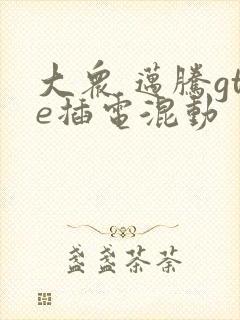 大衆 邁騰gt
e插電混動
盞盞茶荼